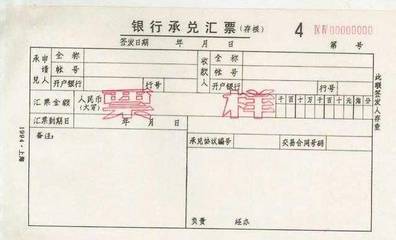 银行承兑汇票(存根) 4 NW00000000
签发日期 年 月 日 第 号
承兑申请人 全称 收款人 全称
帐号 帐号
开户银行 行号 开户银行 行号
汇票金额 人民币(大写) 千百十万千百十元角分
票样
汇票到期日 年 月 日
备注: 承兑协议编号 交易合同号码
负责 经办
此联签发人存查
1994·上海